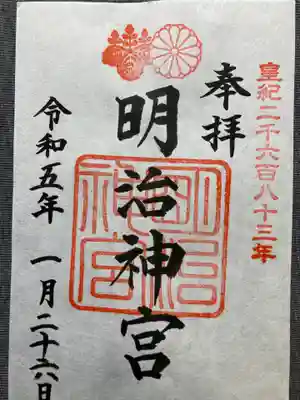 皇紀二千六百八十三年
奉拝
明治神宮
明治神宮
令和五年 一月二十六日